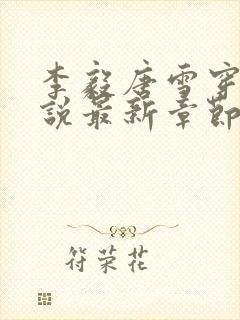 李毅唐雪穿
说最新章节
符荣花